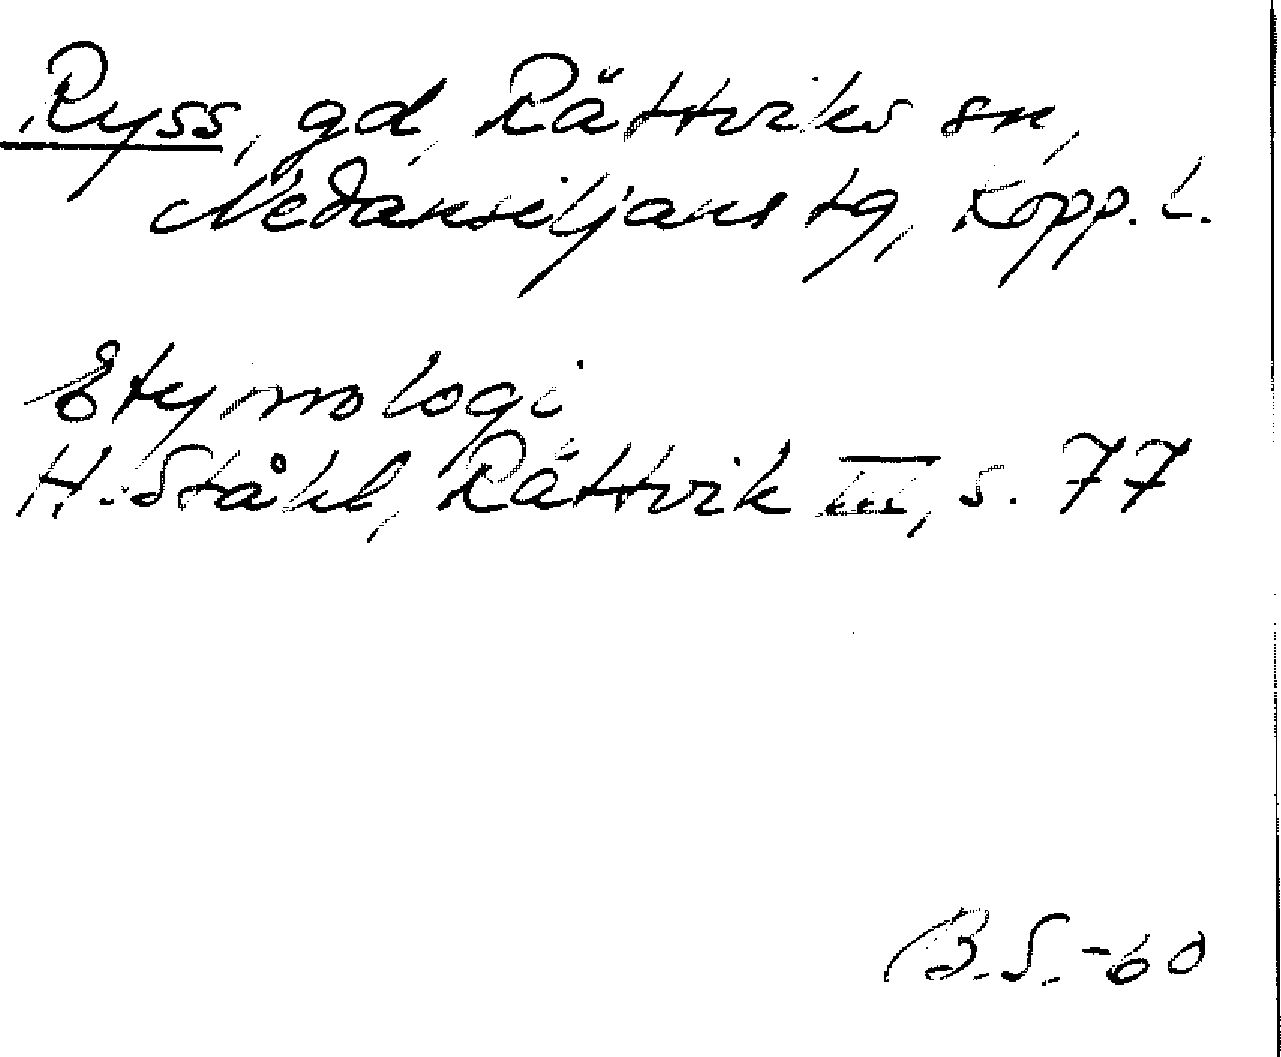 Ryss, gd, Rättviks sn,
Nedansiljans tg, Kopp. l.
Etymologi
H. Ståhl, Rättvik III, s. 77
B.S. -60